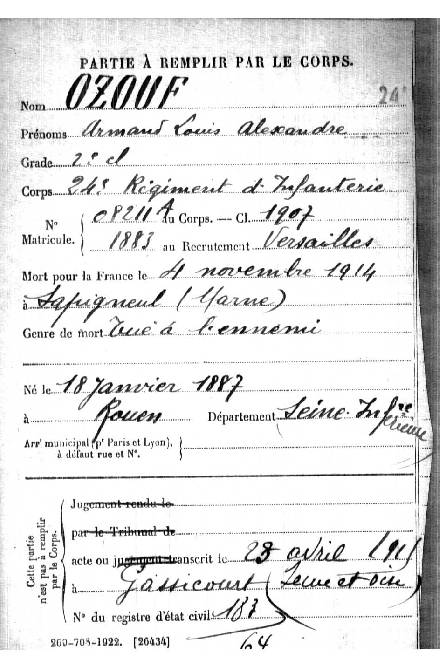 PARTIE À REMPLIR PAR LE CORPS.
Nom OZOUF 24
Prénoms Armand Louis Alexandre
Grade 2e cl
Corps 24e Régiment d'Infanterie
N° Matricule. { 08211 A au Corps. — Cl. 1907
1883 au Recrutement Versailles
Mort pour la France le 4 novembre 1914
à Sapigneul (Marne)
Genre de mort Tué à l'ennemi
Né le 18 Janvier 1887
à Rouen Département Seine-Inférieure
Arrt municipal (pr Paris et Lyon),
à défaut rue et N°.
Cette partie n'est pas à remplir par le Corps.
Jugement rendu le
par le Tribunal de
acte ou jugement transcrit le 23 avril 191
à Gassicourt (Seine et Oise)
N° du registre d'état civil 187
269-708-1922. [26434] 64